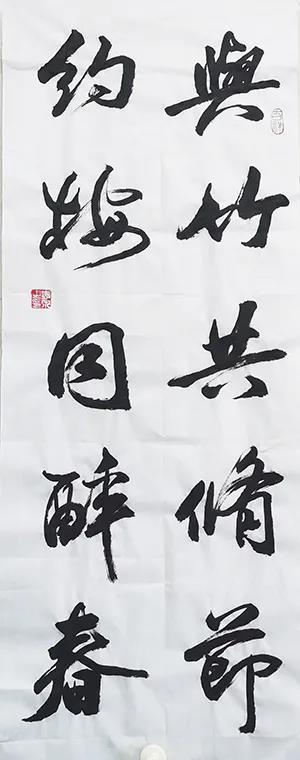 與竹共脩節
約梅同醉春